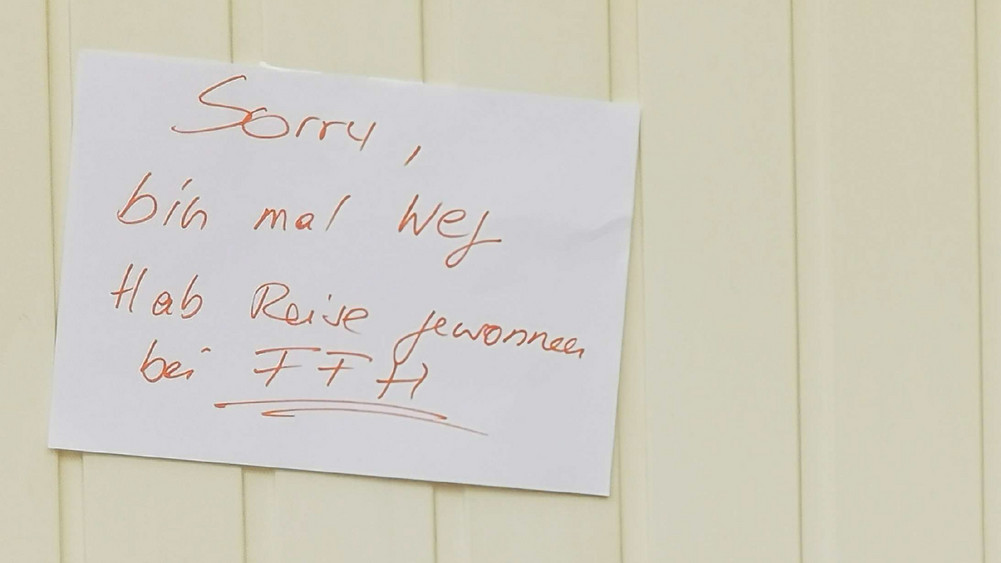 Sorry,
bin mal weg
Hab Reise gewonnen
bei FFH